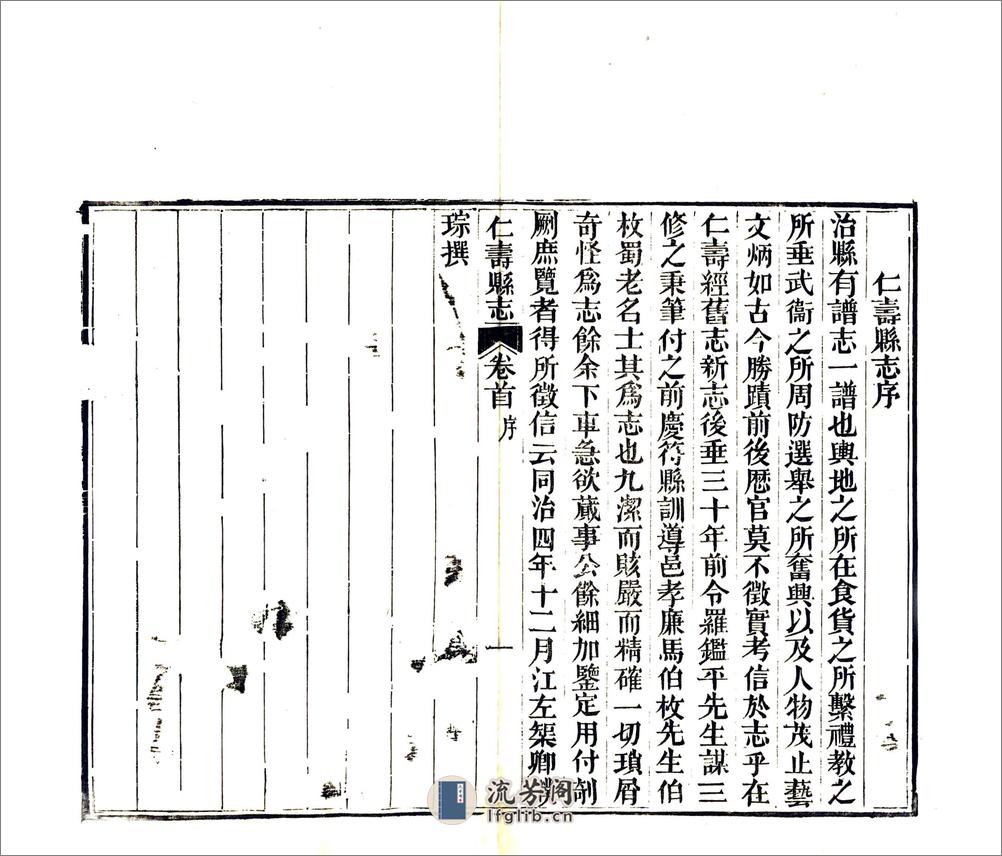 仁壽縣志序
治縣有譜志一譜也輿地之所在食貨之所繫禮教之
所垂武衞之所周防選舉之所奮興以及人物茂止藝
文炳如古今勝蹟前後歷官莫不徵實考信於志乎在
仁壽經舊志新志後垂三十年前令羅鑑平先生謀三
修之秉筆付之前慶符縣訓導邑孝廉馬伯枚先生伯
枚蜀老名士其爲志也九潔而賅嚴而精確一切瑣屑
奇怪爲志餘余下車急欲蕆事公餘細加鑒定用付剞
劂庶覽者得所徵信云同治四年十二月江左榘卿
仁壽縣志 卷首 序 一
琮撰
流芳阁
lfglib.cn